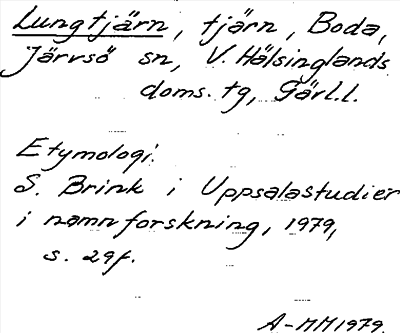 Lungtjärn, tjärn, Boda,
Järvsö sn, V. Hälsinglands
doms. tg, Gävl.l.
Etymologi.
S. Brink i Uppsalastudier
i namnforskning, 1979,
s. 29f.
A-MM 1979.